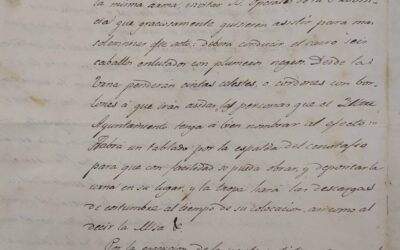 la misma arma, invitar
que graciosamente quisieren asistir para mas
solemnizar este acto: debera conducir el carro seis
caballos enlutados con plumeros negros. Desde la
Urna penderan cintas celestes, o cordones con bor-
lones á que irán asidas las personas que el Iltre
Ayuntamiento tenga á bien nombrar al efecto=
Habra un tablado por la espalda del cenotafio
para que con facilidad se pueda obrar, y depositar la
urna en su lugar, y la tropa hará las descargas
de costumbre al tiempo de su colocacion, asi como al
decir la Misa
Por la